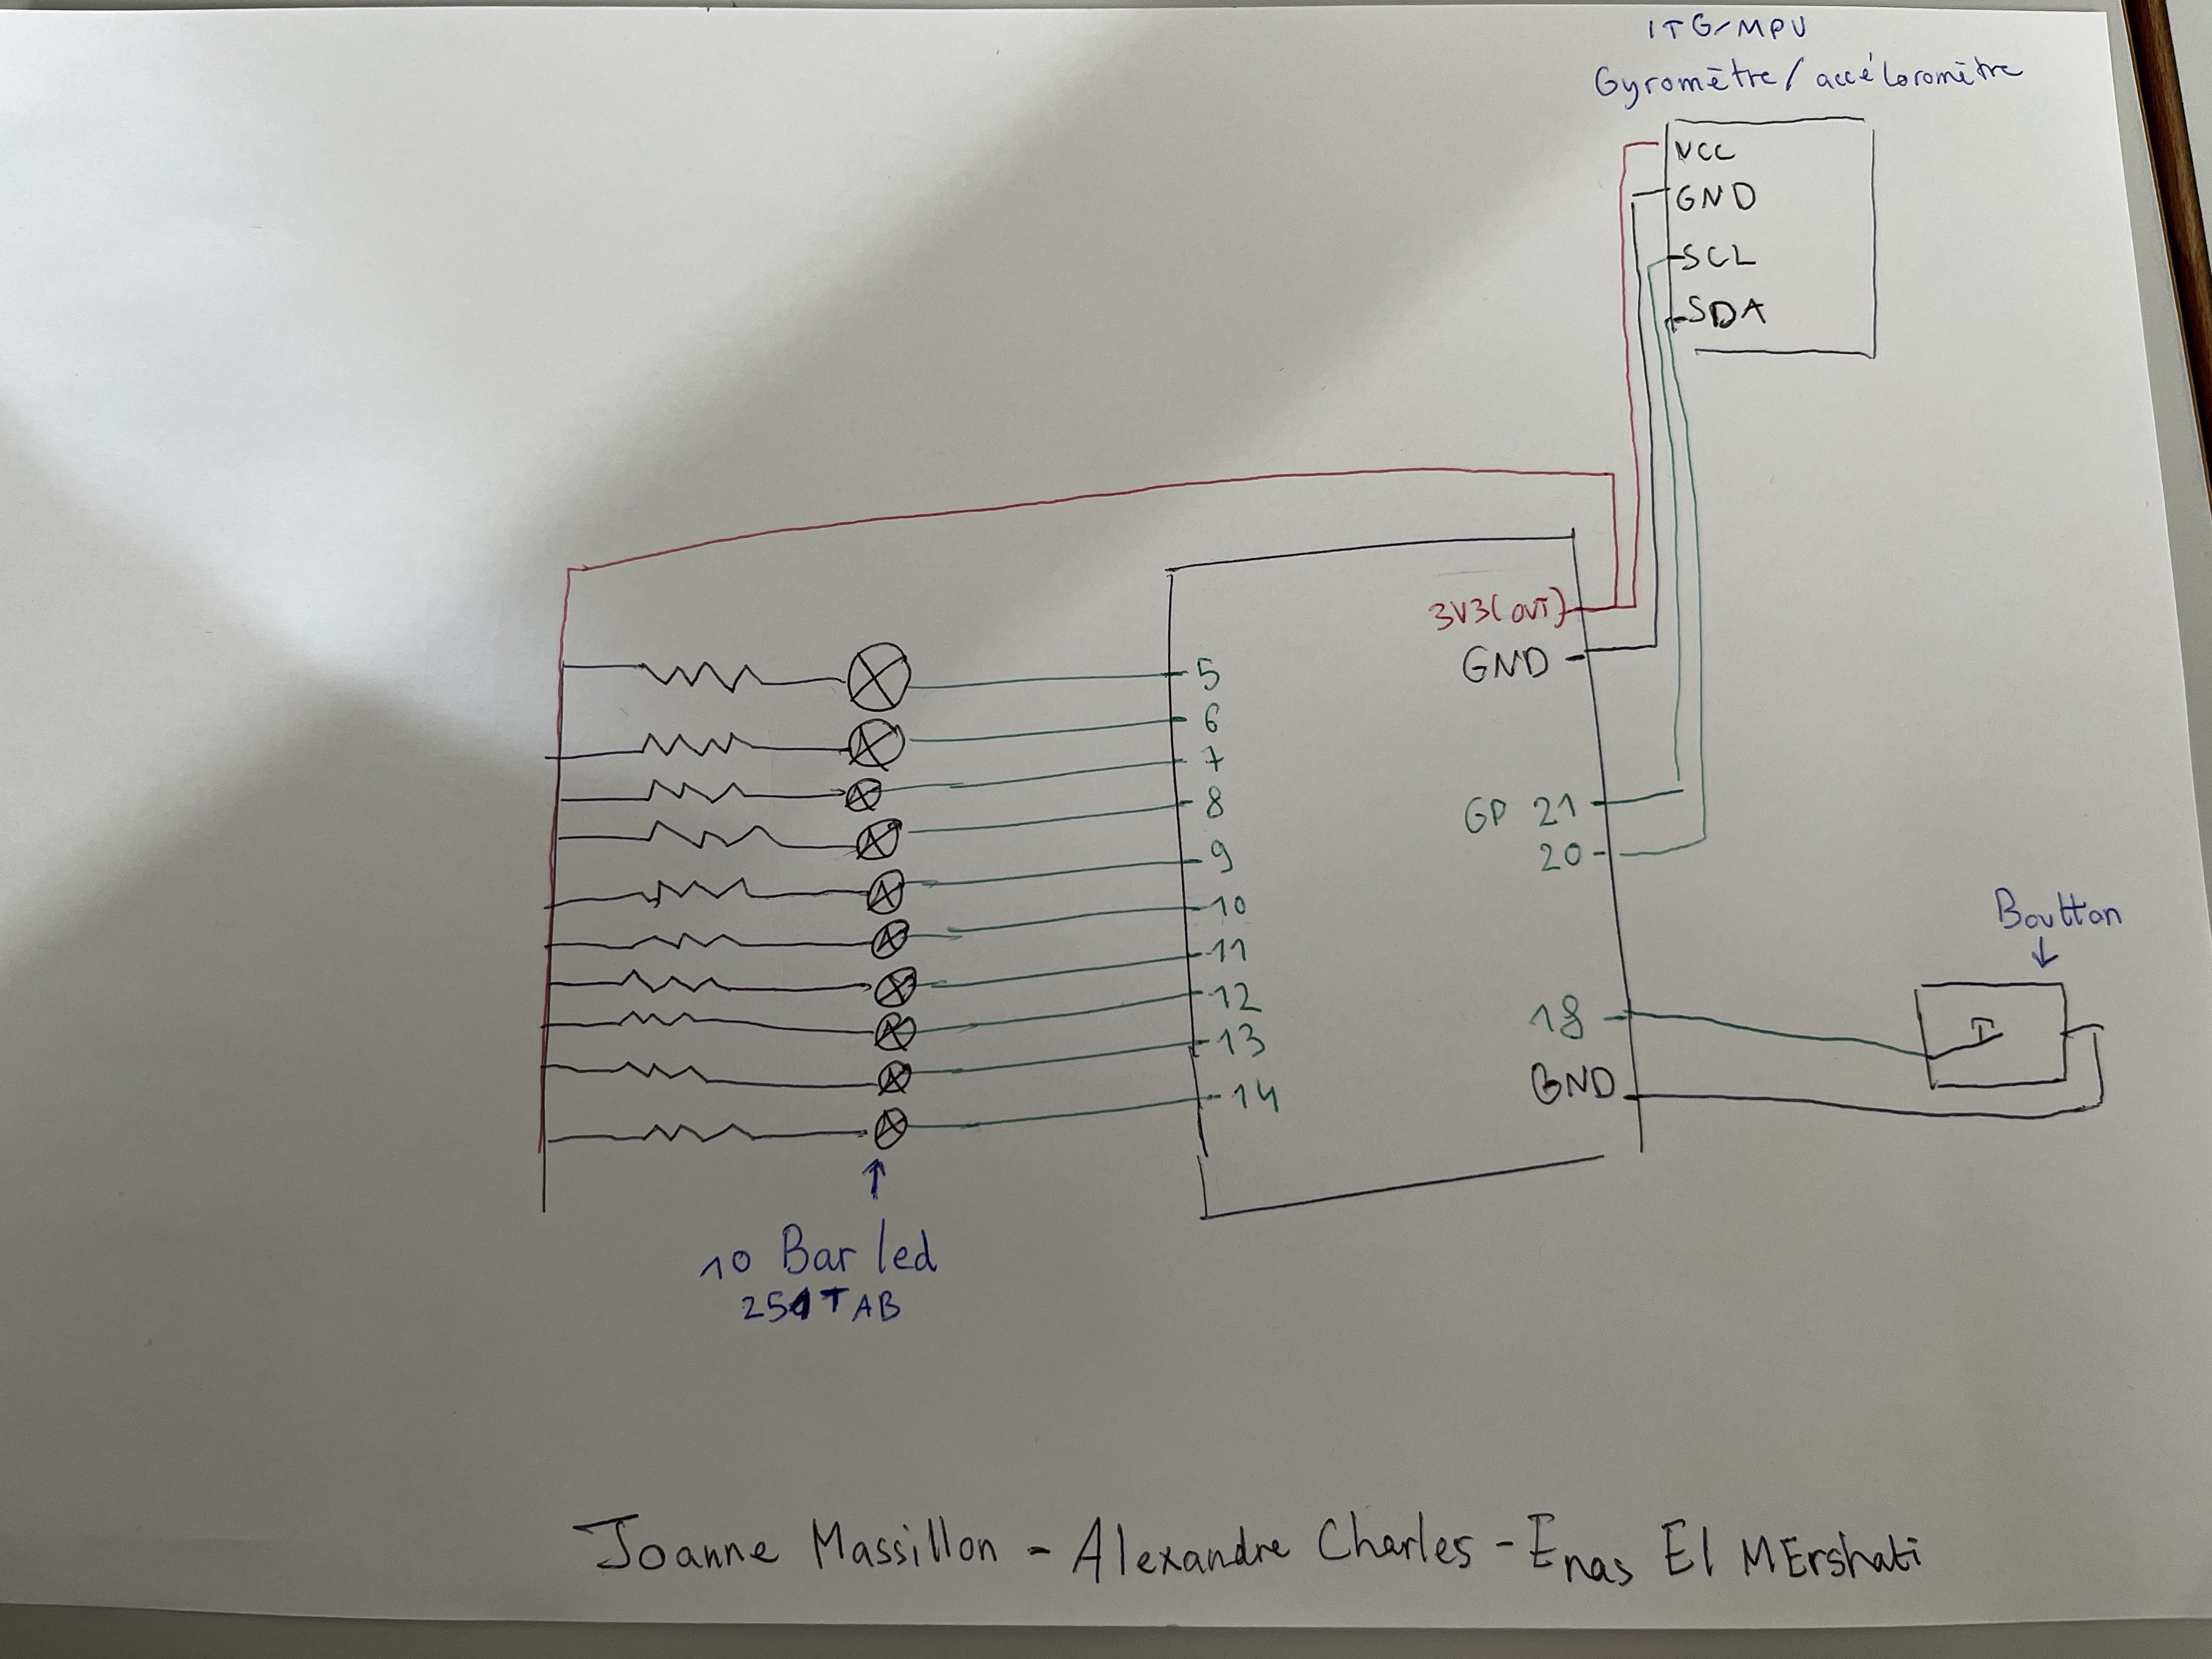 ITG/MPU
Gyromètre/accéloromètre
VCC
GND
SCL
SDA
3V3(OUT)
GND
5
6
7
8
9
10
11
12
13
14
GP 21
20
18
GND
Boutton
10 Bar led
251TAB
Joanne Massillon - Alexandre Charles - Enas El MErshati